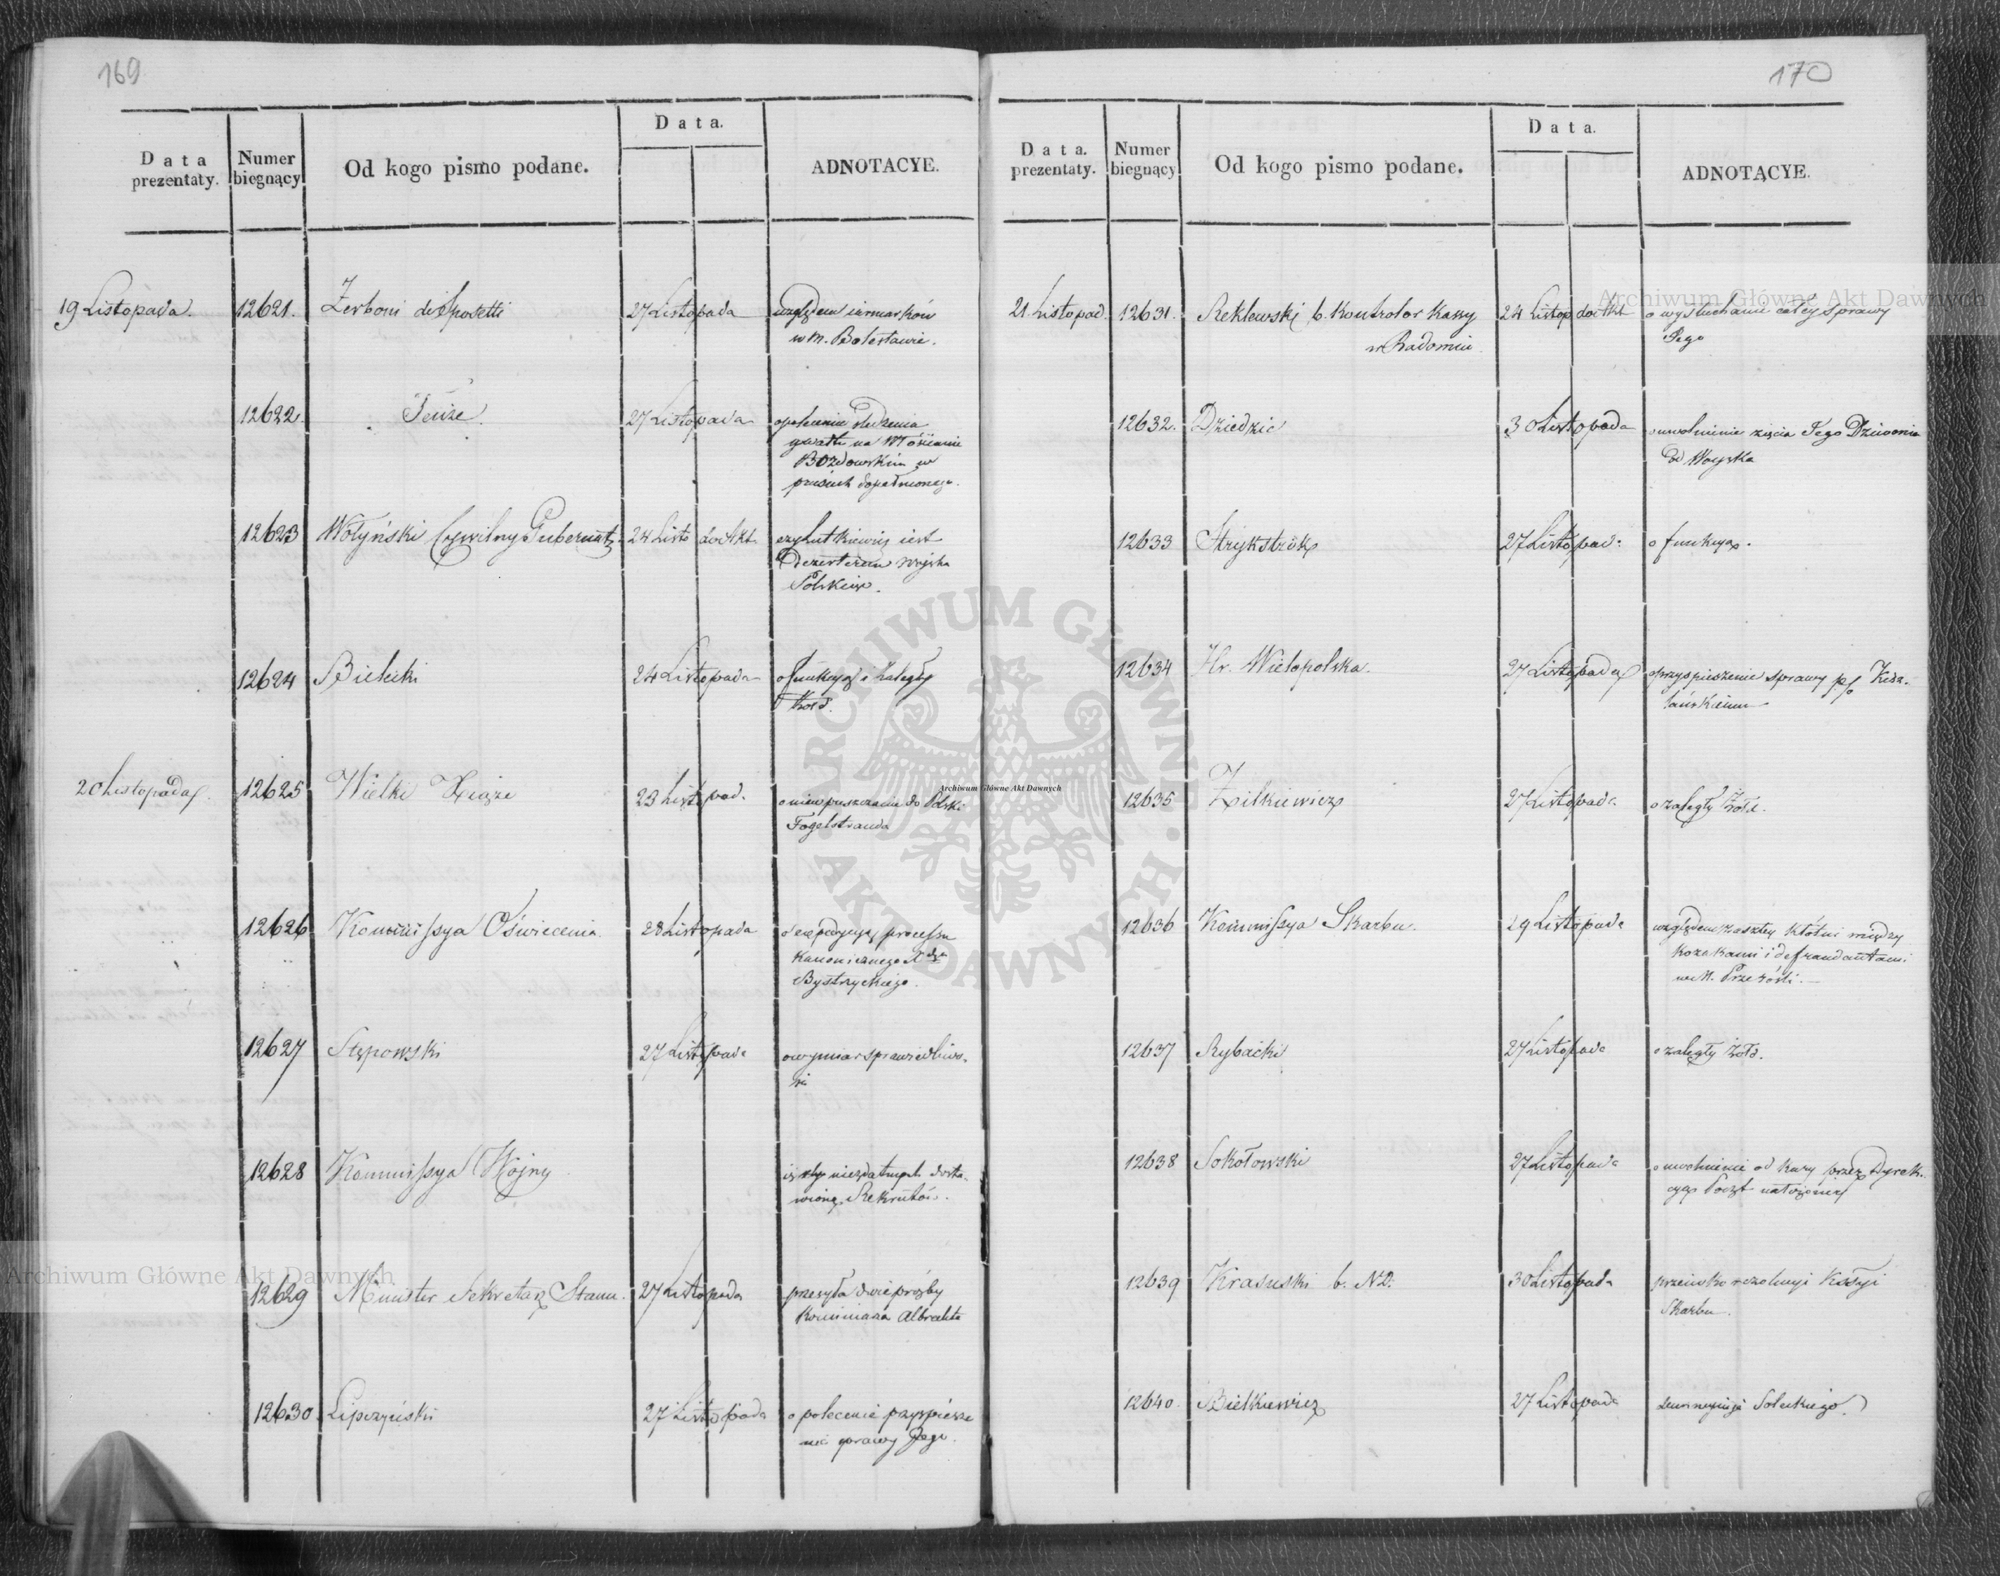 169
Data prezentaty. Numer biegnący Od kogo pismo podane. Data. ADNOTACYE.
19 Listopada. 12621. Zerboni di Sposetti 27 Listopada względem iarmarków
w m. Bolesławie.
12622. Tenże. 27 Listopada o polecenie śledzenia
gwałtu na Włościanie
w
12623 Wołyński Cywilny Gubernat. 24 Listo czy Lutkiewicz iest
Dezerterem woyska
Polskiego.
12624 Bielecki 24 Listopada o funkcyą i zaległy
żołd.
20 Listopada 12625 Wielki Xiąże 23 Listopad. o niewpuszczaniu do Polski
Fogelstranda
12626 Kommissya Oświecenia 28 Listopada processu
Kanonicznego Xdza
Bystrzyckiego.
12627 Stępowski 27 Listopada o wymiar sprawiedliwo-
ści
12628 Kommissya Woyny niezdatnych dosta-
wiono Rekrutów.
12629 Minister Sekretarz Stanu. 27 Listopada przesyła dwie prośby
Kominiarza Albrechta
12630 Lipczyński 27 Listopada o polecenie przyspiesze
nia sprawy Jego.
170
Data. prezentaty. Numer biegnący Od kogo pismo podane. Data. ADNOTACYE.
21 Listopad. 12631. Reklewski b. Kontrolor Kassy 24 Listop o wysłuchanie całey sprawy
w Radomiu Jego
12632. Dziedzic 30 Listopada o uwolnienie zięcia Jego
od Woyska
12633 27 Listopad. o funkcyą.
12634 Hr. Wielopolska. 27 Listopada o przyspieszenie sprawy p/o
12635 Zilkiewicz 27 Listopada o zaległy żołd.
12636 Kommissya Skarbu. 29 Listopada względem zaszłey kłótni między
kozakami i defraudantami
w M. Przerośli. —
12637 Rybacki 27 Listopada o zaległy żołd.
12638 Sokołowski 27 Listopada o uwolnienie od kary przez Dyrek-
cyą Poczt nałożoney
12639 Krasuski b. N.D. 30 Listopada przeciwko rezolucyi Kossyi
Skarbu.
12640 Bielkiewicz 27 Listopada denuncyuje Soleckiego
Archiwum Główne Akt Dawnych
ARCHIWUM GŁÓWNE
AKT DAWNYCH
Archiwum Główne Akt Dawnych
Archiwum Główne Akt Dawnych